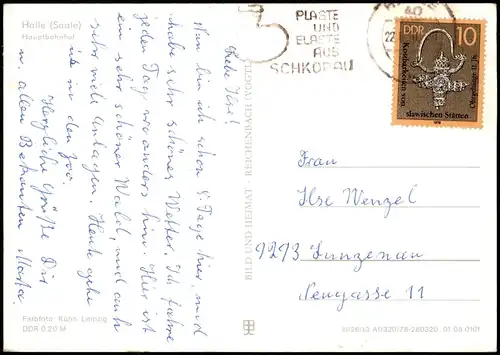 Halle (Saale)
Hauptbahnhof
Liebe Ilse!
Nun bin ich schon 8 Tage hier, und
habe sehr schönes Wetter. Ich fahre
jeden Tag woanders hin. Hier ist
ein sehr schöner Wald, und auch
sehr viele Anlagen. Heute gehe
ich in den Zoo.
Herzliche Grüße Dir
u. allen Bekannten Marta.
Farbfoto: Kühn, Leipzig
DDR 0,20 M
BILD UND HEIMAT · REICHENBACH (VOGTL)
PLASTE
UND
ELASTE
AUS
SCHKOPAU
22
40
DDR 10
Kostbarkeiten von
slawischen Stätten
Ohrgehänge 11. Jh.
1978
Frau
Ilse Wenzel
9293 Lunzenau
Neugasse 11
A1/320/78-280320 01 08 0101